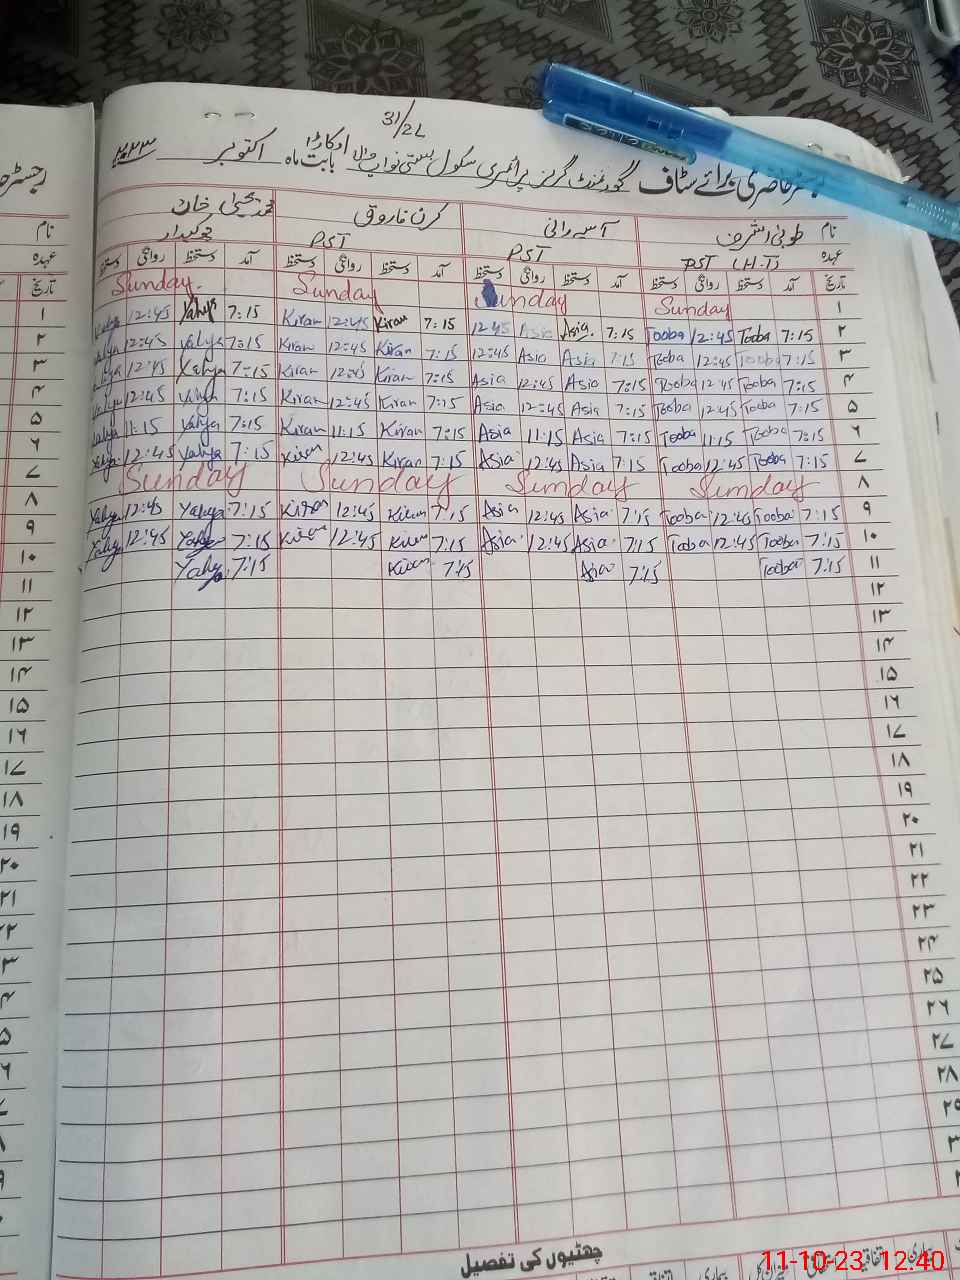 31/2L
رجسٹر حاضری برائے سٹاف گورنمنٹ گرلز پرائمری سکول بستی نواب اوکاڑا بابت ماہ اکتوبر ۲۰۲۳
نام طوبیٰ اشرف آسیہ رانی کرن فاروق محمد یحییٰ خان
عہدہ PST (H.T) PST PST چوکیدار
تاریخ آمد دستخط روانگی دستخط آمد دستخط روانگی دستخط آمد دستخط روانگی دستخط آمد دستخط روانگی دستخط
۱ Sunday Sunday Sunday Sunday
۲ 7:15 Tooba 12:45 Tooba 7:15 Asia. Asia 12:45 7:15 Kiran 12:45 Kiran 7:15 Yahya 12:45 Yahya
۳ 7:15 Tooba 12:45 Tooba 7:15 Asia 12:45 Asia 7:15 Kiran 12:45 Kiran 7:15 Yahya 12:45 Yahya
۴ 7:15 Tooba 12:45 Tooba 7:15 Asia 12:45 Asia 7:15 Kiran 12:45 Kiran 7:15 Yahya 12:45 Yahya
۵ 7:15 Tooba 12:45 Tooba 7:15 Asia 12:45 Asia 7:15 Kiran 12:45 Kiran 7:15 Yahya 12:45 Yahya
۶ 7:15 Tooba 11:15 Tooba 7:15 Asia 11:15 Asia 7:15 Kiran 11:15 Kiran 7:15 Yahya 11:15 Yahya
۷ 7:15 Tooba 12:45 Tooba 7:15 Asia 12:45 Asia 7:15 Kiran 12:45 Kiran 7:15 Yahya 12:45 Yahya
۸ Sunday Sunday Sunday Sunday
۹ 7:15 Tooba 12:45 Tooba 7:15 Asia 12:45 Asia 7:15 Kiran 12:45 Kiran 7:15 Yahya 12:45 Yahya
۱۰ 7:15 Tooba 12:45 Tooba 7:15 Asia 12:45 Asia 7:15 Kiran 12:45 Kiran 7:15 Yahya 12:45 Yahya
۱۱ 7:15 Tooba 7:15 Asia 7:15 Kiran 7:15 Yahya
۱۲
۱۳
۱۴
۱۵
۱۶
۱۷
۱۸
۱۹
۲۰
۲۱
۲۲
۲۳
۲۴
۲۵
۲۶
۲۷
۲۸
چھٹیوں کی تفصیل
11-10-23 12:40